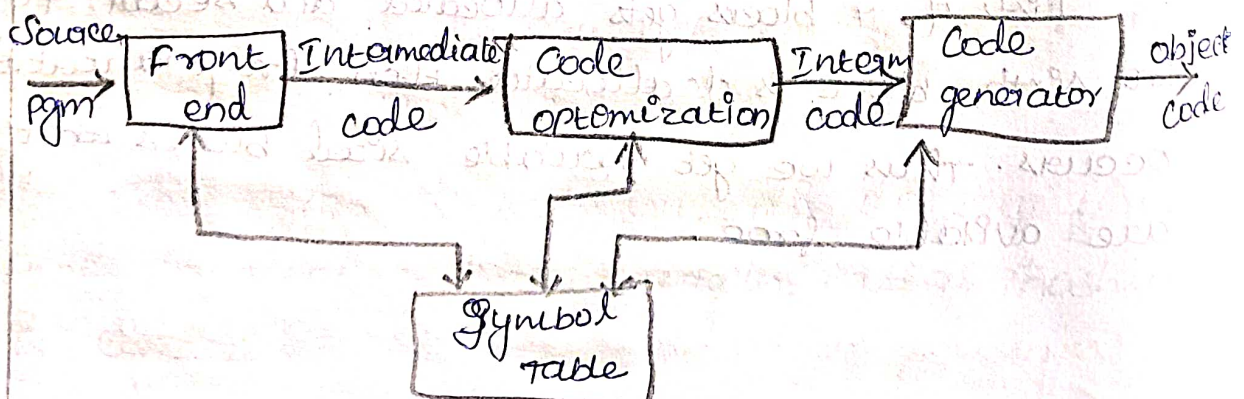 Source
pgm
Front
end
Intermediate
code
Code
optemization
Interm
code
Code
generator
object
code
Symbol
Table